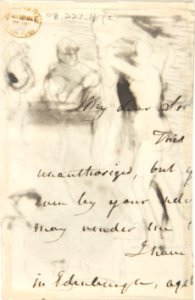 08.222.4 (2
My dear Sir
This
unauthorized, but y
even by your
may render me
I have
in Edinburgh, ag